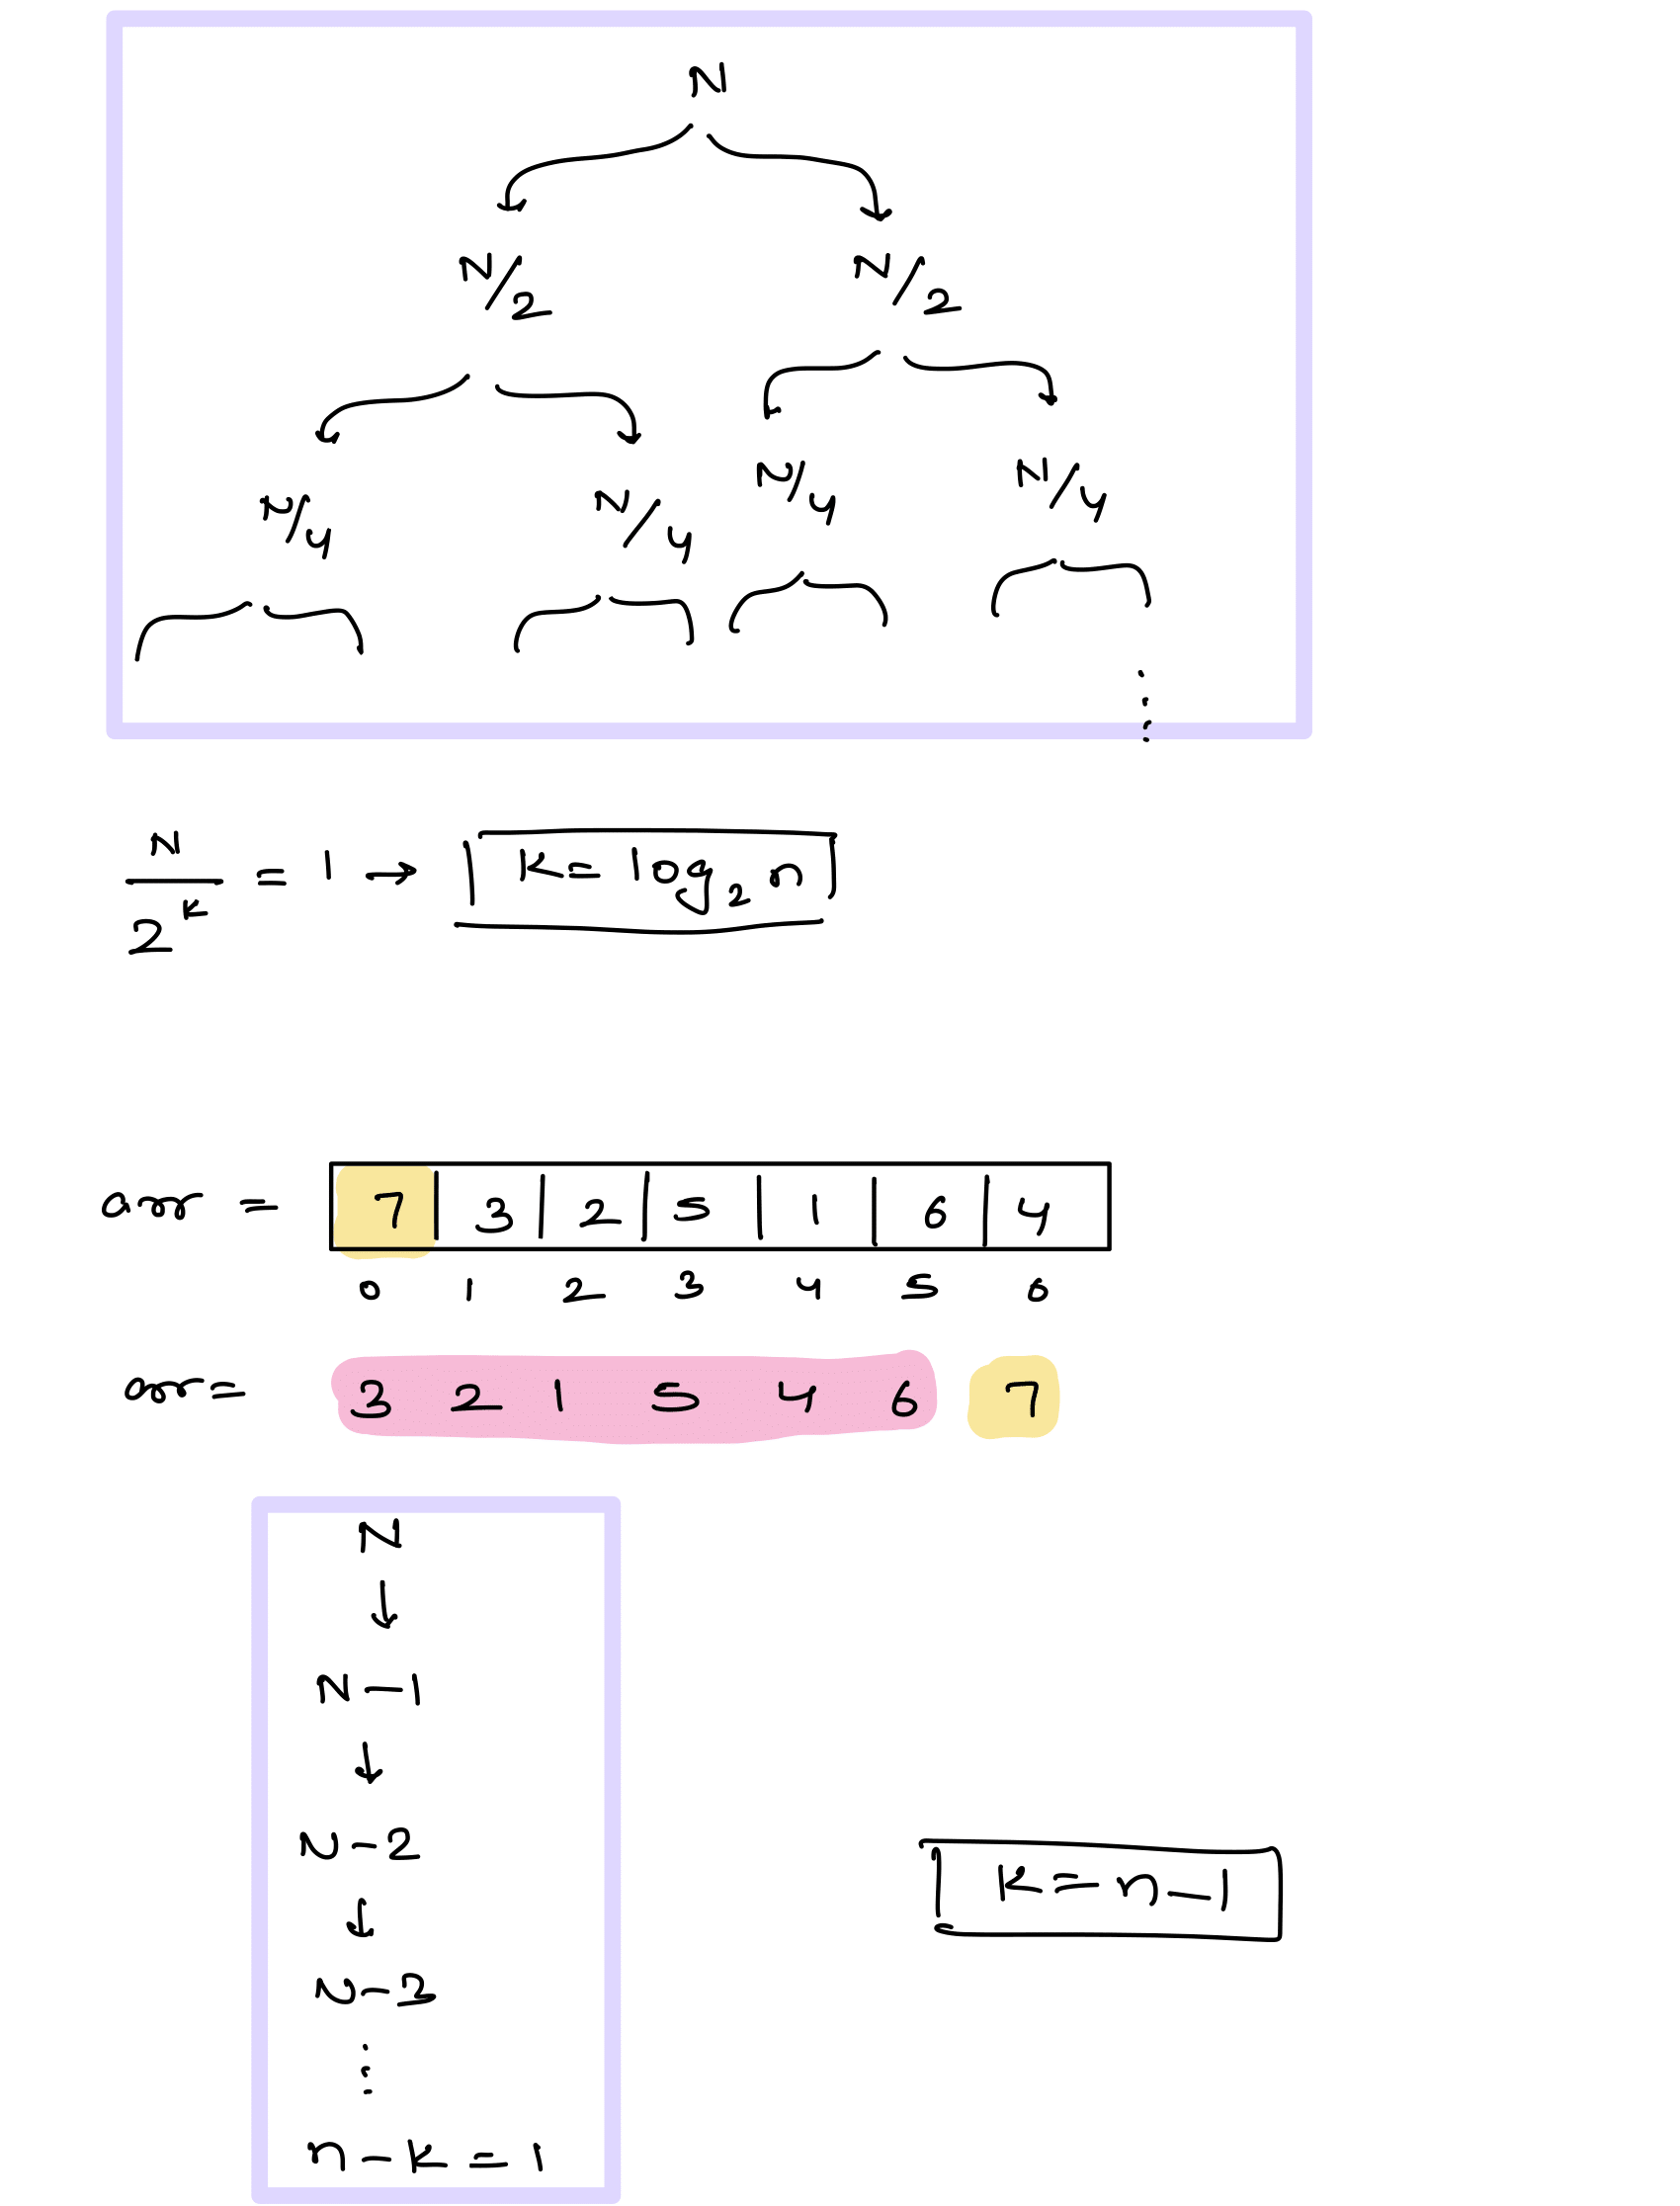 N
N/2 N/2
N/4 N/4 N/4 N/4
N/2^K = 1 → K = log₂ n
arr = 7 | 3 | 2 | 5 | 1 | 6 | 4
0 1 2 3 4 5 6
arr = 3 2 1 5 4 6 7
N
↓
N-1
↓
N-2
↓
N-3
⋮
K = n-1
n-k = 1